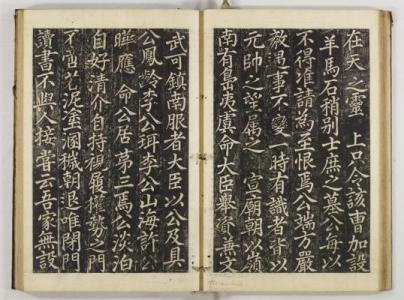 在天之靈 上只令該曹加設
羊馬石稍別士庶之墓公每以
不得准請為至恨焉公端方嚴
毅遇事不變一時有識者皆以
元帥之望屬之 宣廟朝以嶺
南有島夷虞命大臣擧資兼文
武可鎭南服者大臣以公及具
公鳳齡李公珥李公山海許公
曄應 命公居第三焉公淡泊
自好淸介自持視履權勢之門
不啻若泥塗溷穢朝退唯閉門
讀書不與人接嘗云吾家無設